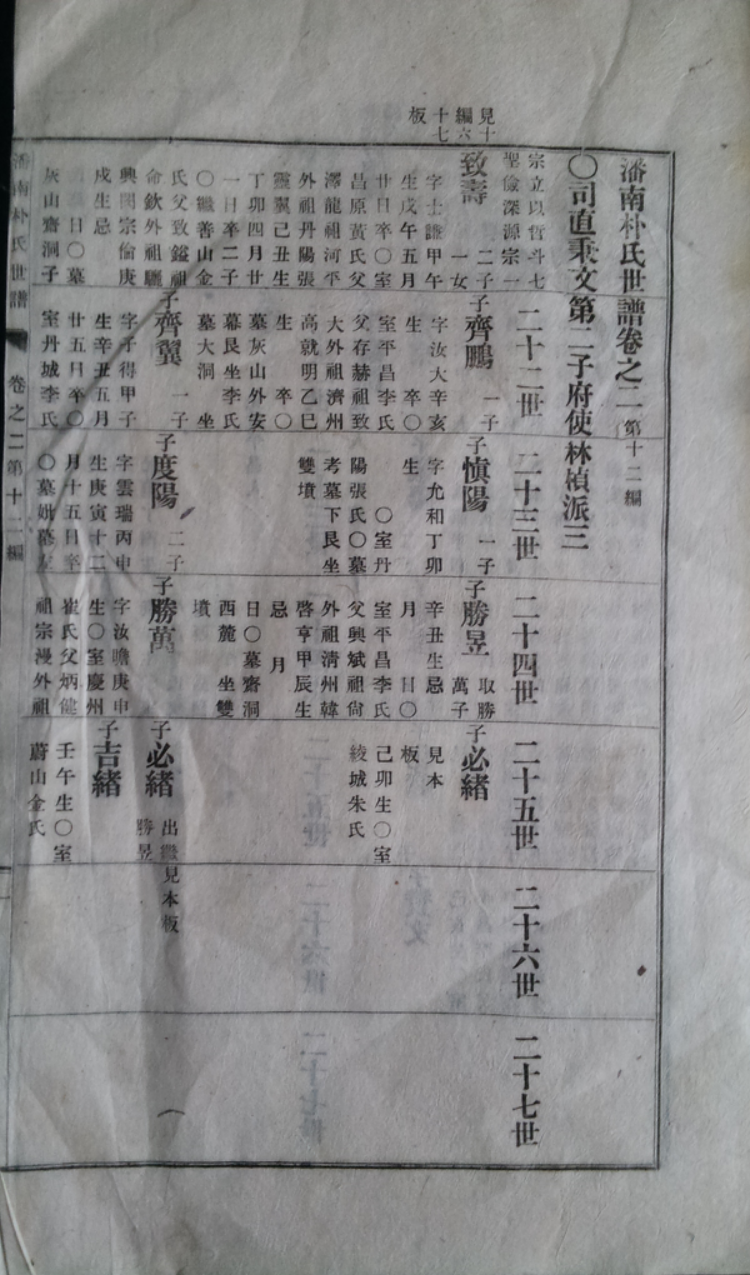 潘南朴氏世譜卷之二 第十二編
〇司直秉文第二子府使林楨派三
見十
編六
十七
板
宗立以哲斗七
聖儉深源宗一
致壽 二子
一女
字士謙甲午
生戊午五月
廿日卒〇室
昌原黃氏父
澤龍祖河平
外祖丹陽張
靈翼己丑生
丁卯四月廿
一日卒二子
〇繼善山金
氏父致鎰祖
命欽外祖驪
興閔宗倫庚
戌生忌
日〇墓
灰山齋洞子
二十二世
子齊鵬 一子
字汝大辛亥
生 卒〇
室平昌李氏
父存赫祖致
大外祖濟州
高就明乙巳
生 卒〇
墓灰山外安
幕艮坐李氏
墓大洞 坐
子齊翼 一子
字子得甲子
生辛丑五月
廿五日卒〇
室丹城李氏
二十三世
子愼陽 一子
字允和丁卯
生
〇室丹
陽張氏〇墓
考墓下艮坐
雙墳
子度陽 二子
字雲瑞丙申
生庚寅十二
月十五日卒
〇墓妣墓左
二十四世
子勝昱 取勝
萬子
辛丑生忌
月 日〇
室平昌李氏
父興斌祖尙
外祖淸州韓
啓亨甲辰生
忌 月
日〇墓齋洞
西麓 坐雙
墳
子勝萬
字汝曕庚申
生〇室慶州
崔氏父炳健
祖宗漫外祖
二十五世
子必緒
見本
板
己卯生〇室
綾城朱氏
子必緒 出繼
勝昱
見本板
子吉緒
壬午生〇室
蔚山金氏
二十六世
二十七世
潘南朴氏世譜 卷之二第十二編